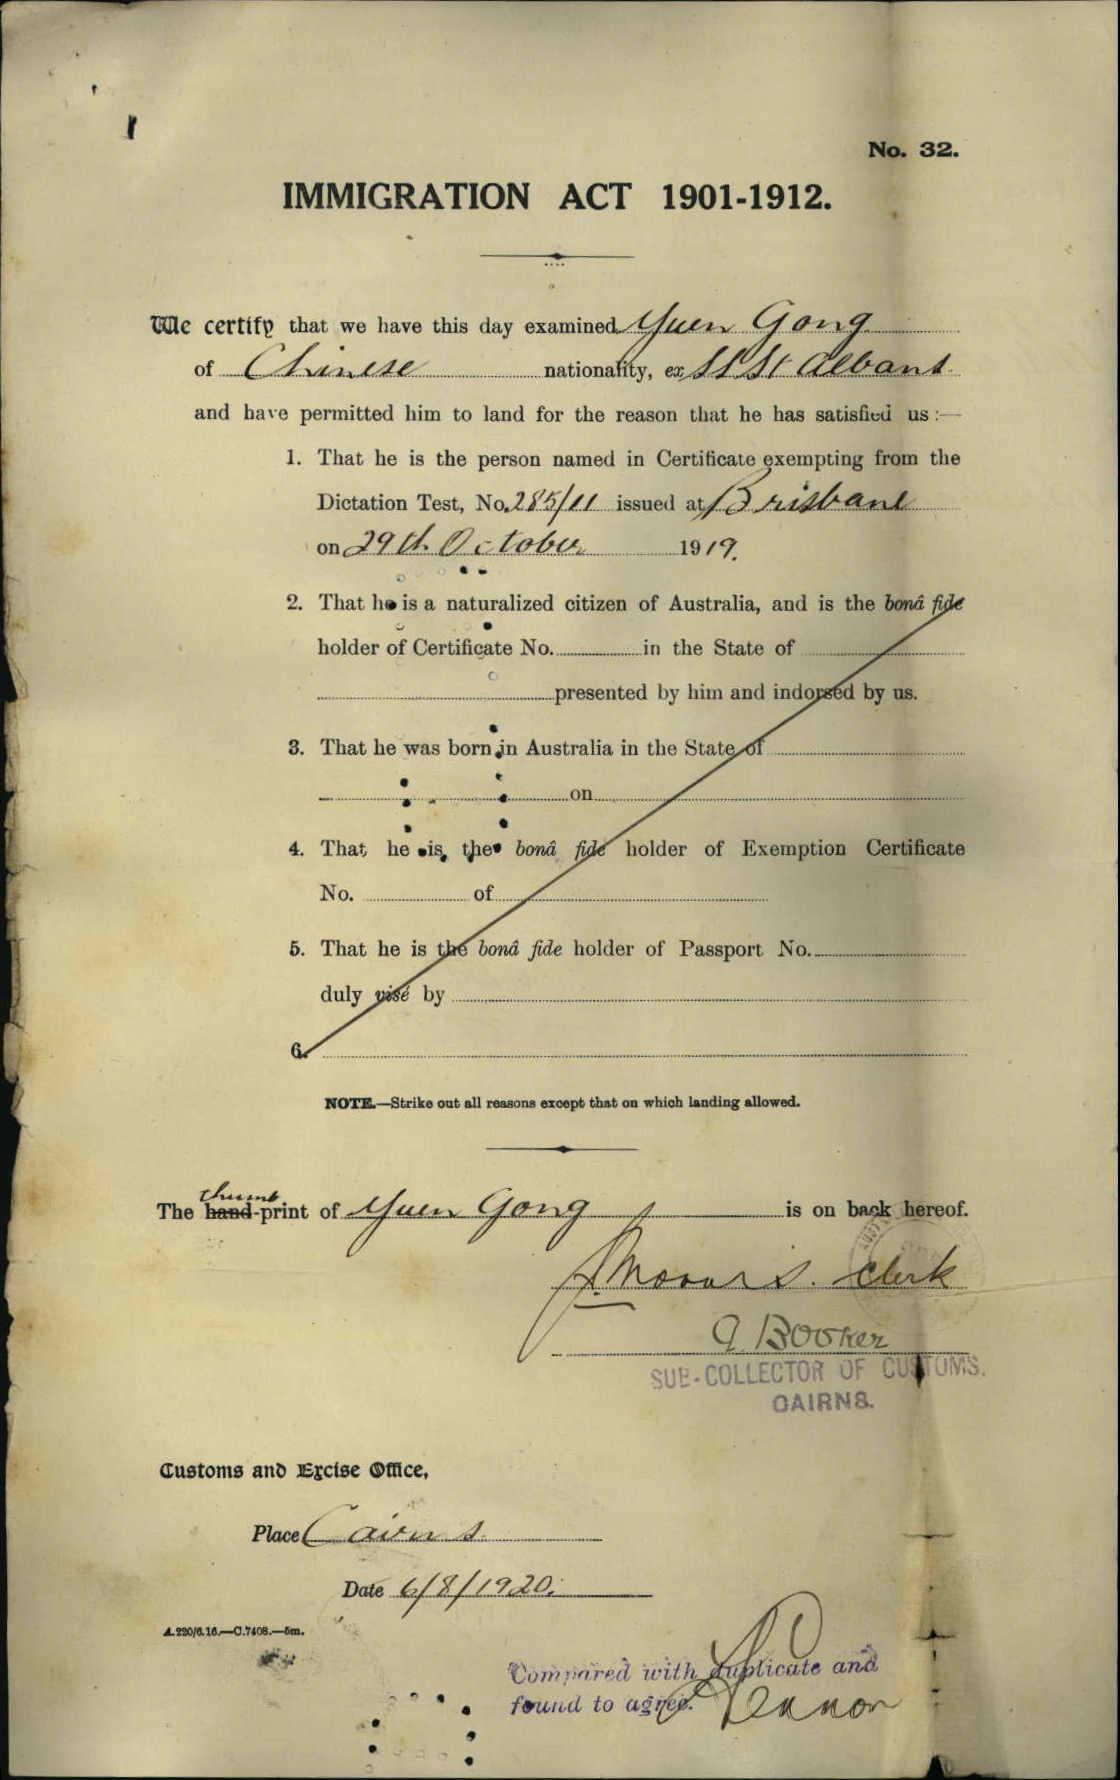 No. 32.
IMMIGRATION ACT 1901-1912.
We certify that we have this day examined Yuen Gong
of Chinese nationality, ex SS St Albans
and have permitted him to land for the reason that he has satisfied us :—
1. That he is the person named in Certificate exempting from the
Dictation Test, No. 285/11 issued at Brisbane
on 29th October 1919.
2. That he is a naturalized citizen of Australia, and is the bonâ fide
holder of Certificate No. in the State of
presented by him and indorsed by us.
3. That he was born in Australia in the State of
on
4. That he is the bonâ fide holder of Exemption Certificate
No. of
5. That he is the bonâ fide holder of Passport No.
duly visé by
6.
NOTE.—Strike out all reasons except that on which landing allowed.
thumb
The hand-print of Yuen Gong is on back hereof.
Clerk
Booker
SUB-COLLECTOR OF CUSTOMS.
CAIRNS.
Customs and Excise Office,
Place Cairns
Date 6/8/1920.
A.220/6.16.—C.7408.—5m.
Compared with duplicate and
found to agree.